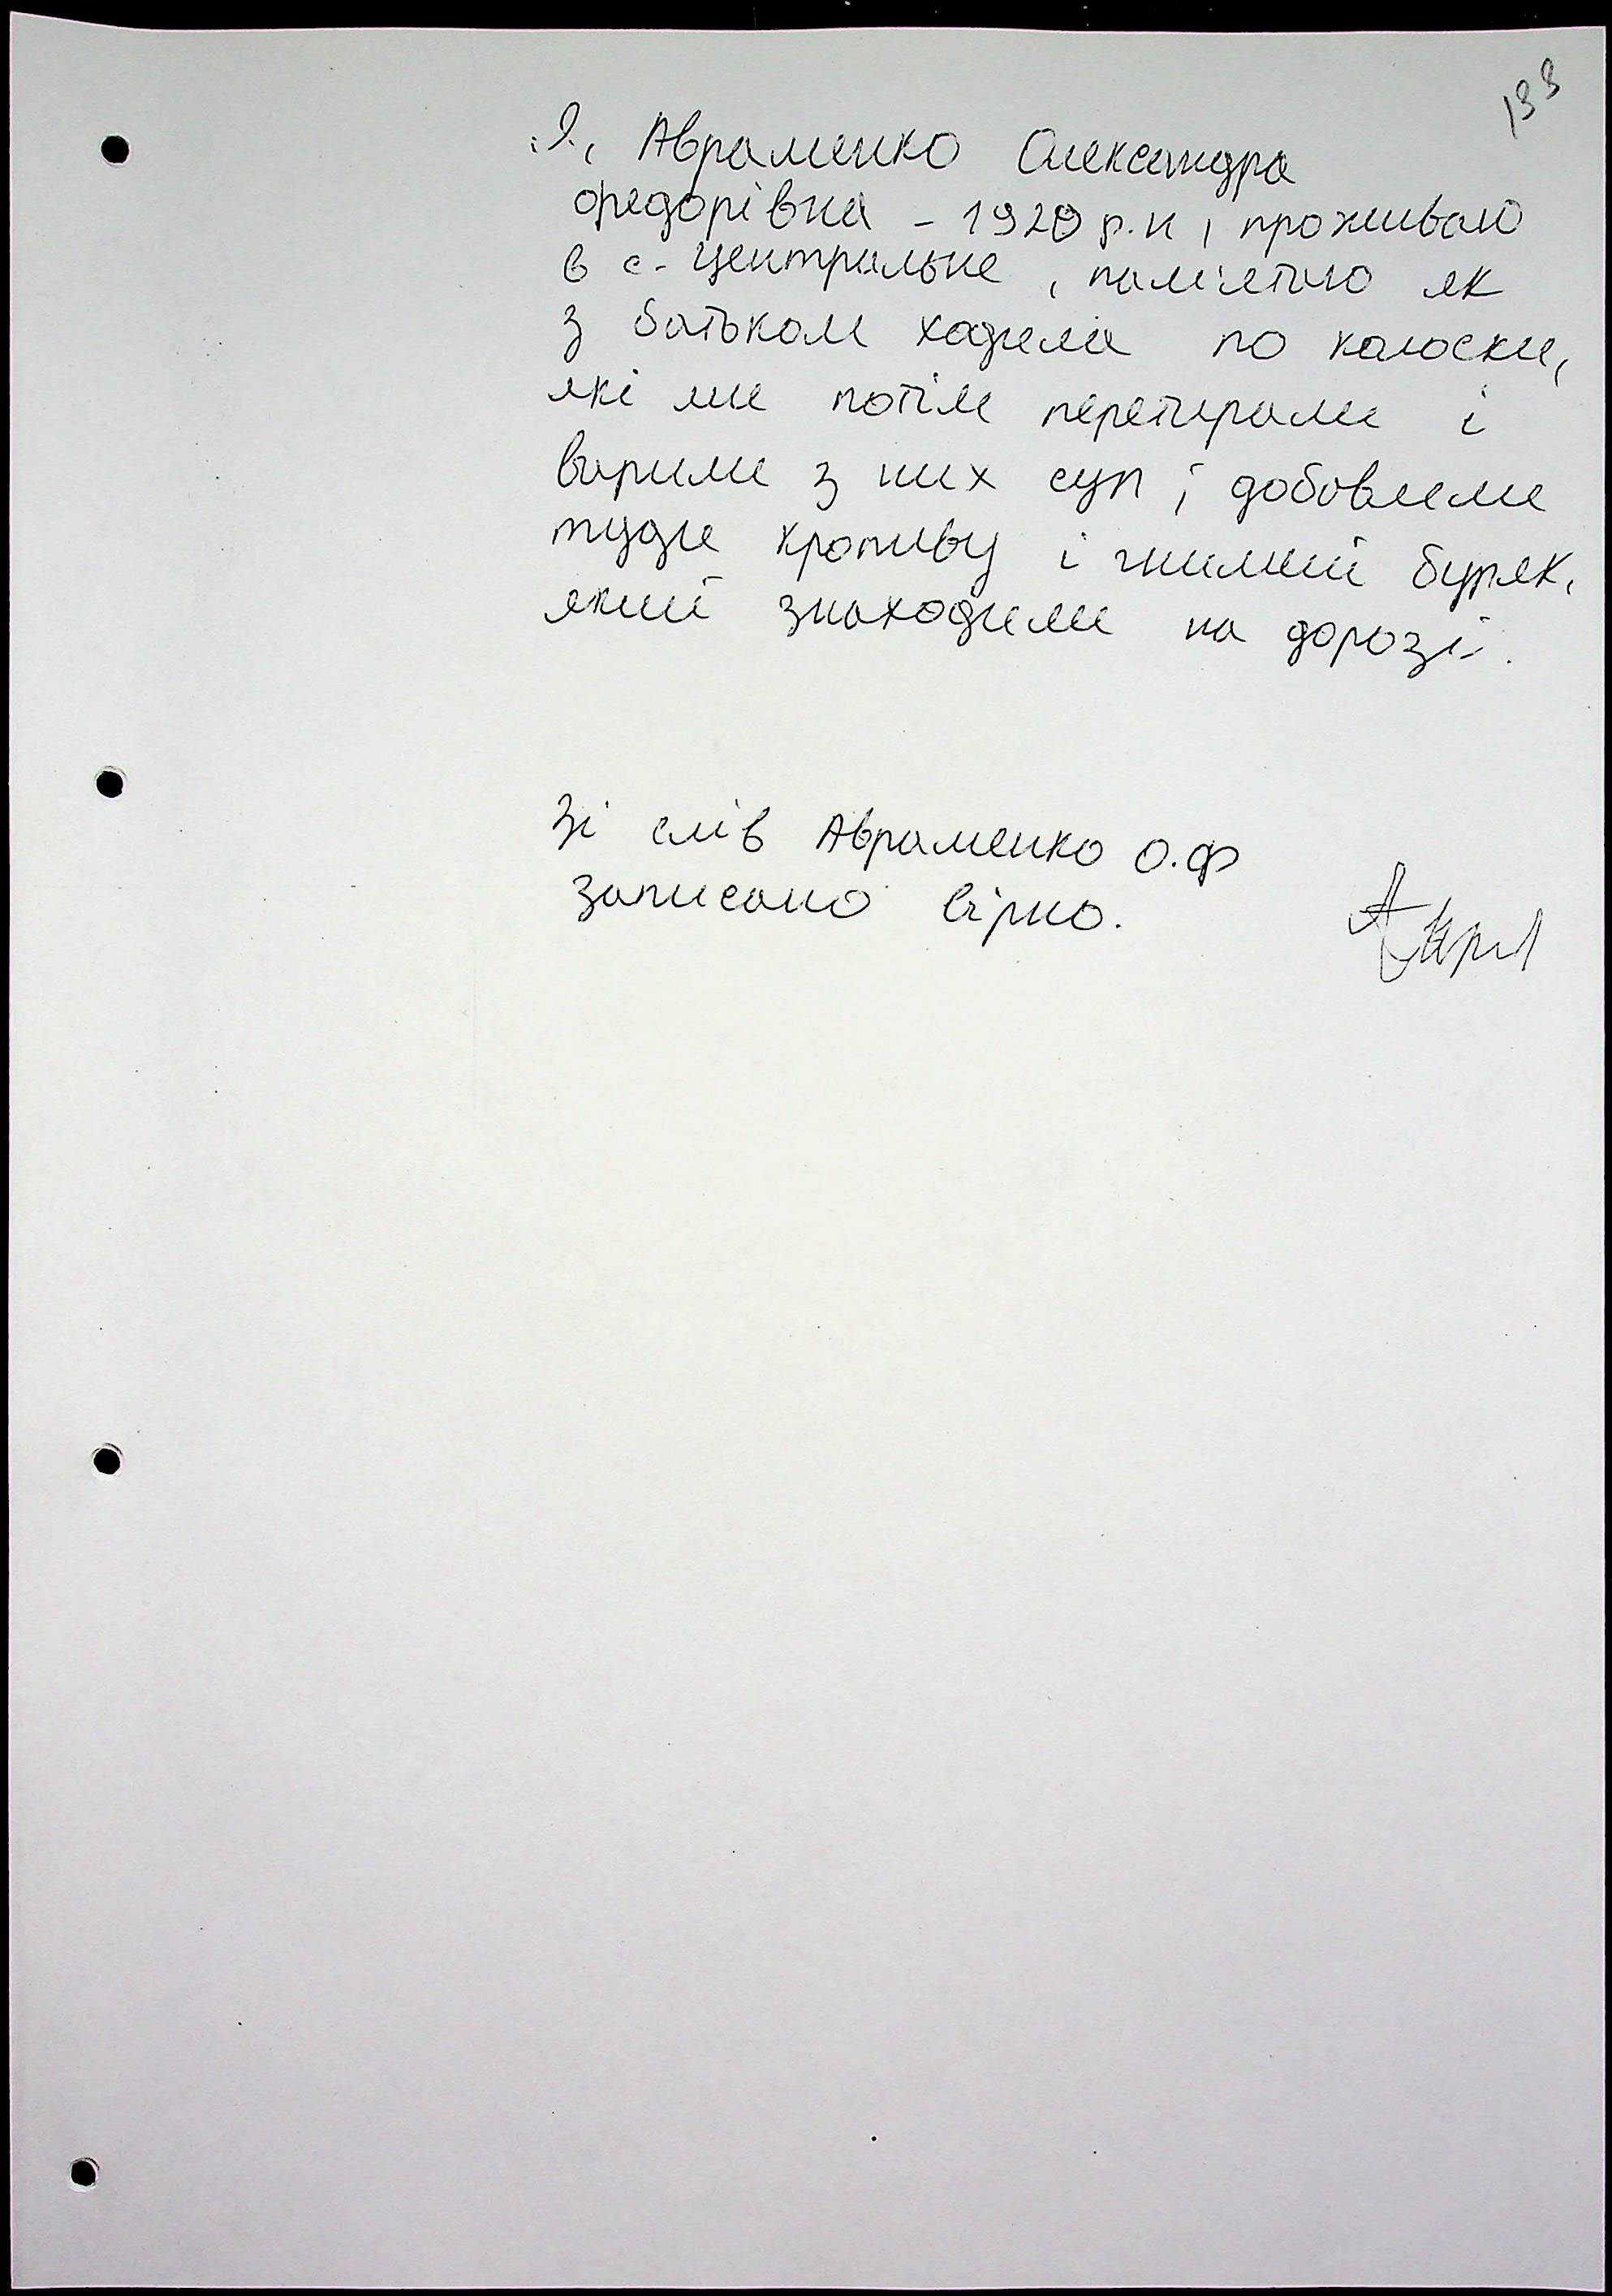 133
Я, Авраменко Олександра
Федорівна - 1920 р.н, проживаю
в с. Центральне, пам'ятаю як
з батьком ходила по колоски,
які ми потім перетирали і
варили з них суп, добовляли
туди кропиву і гнилий буряк,
який знаходили на дорозі.
Зі слів Авраменко О.Ф
записано вірно.